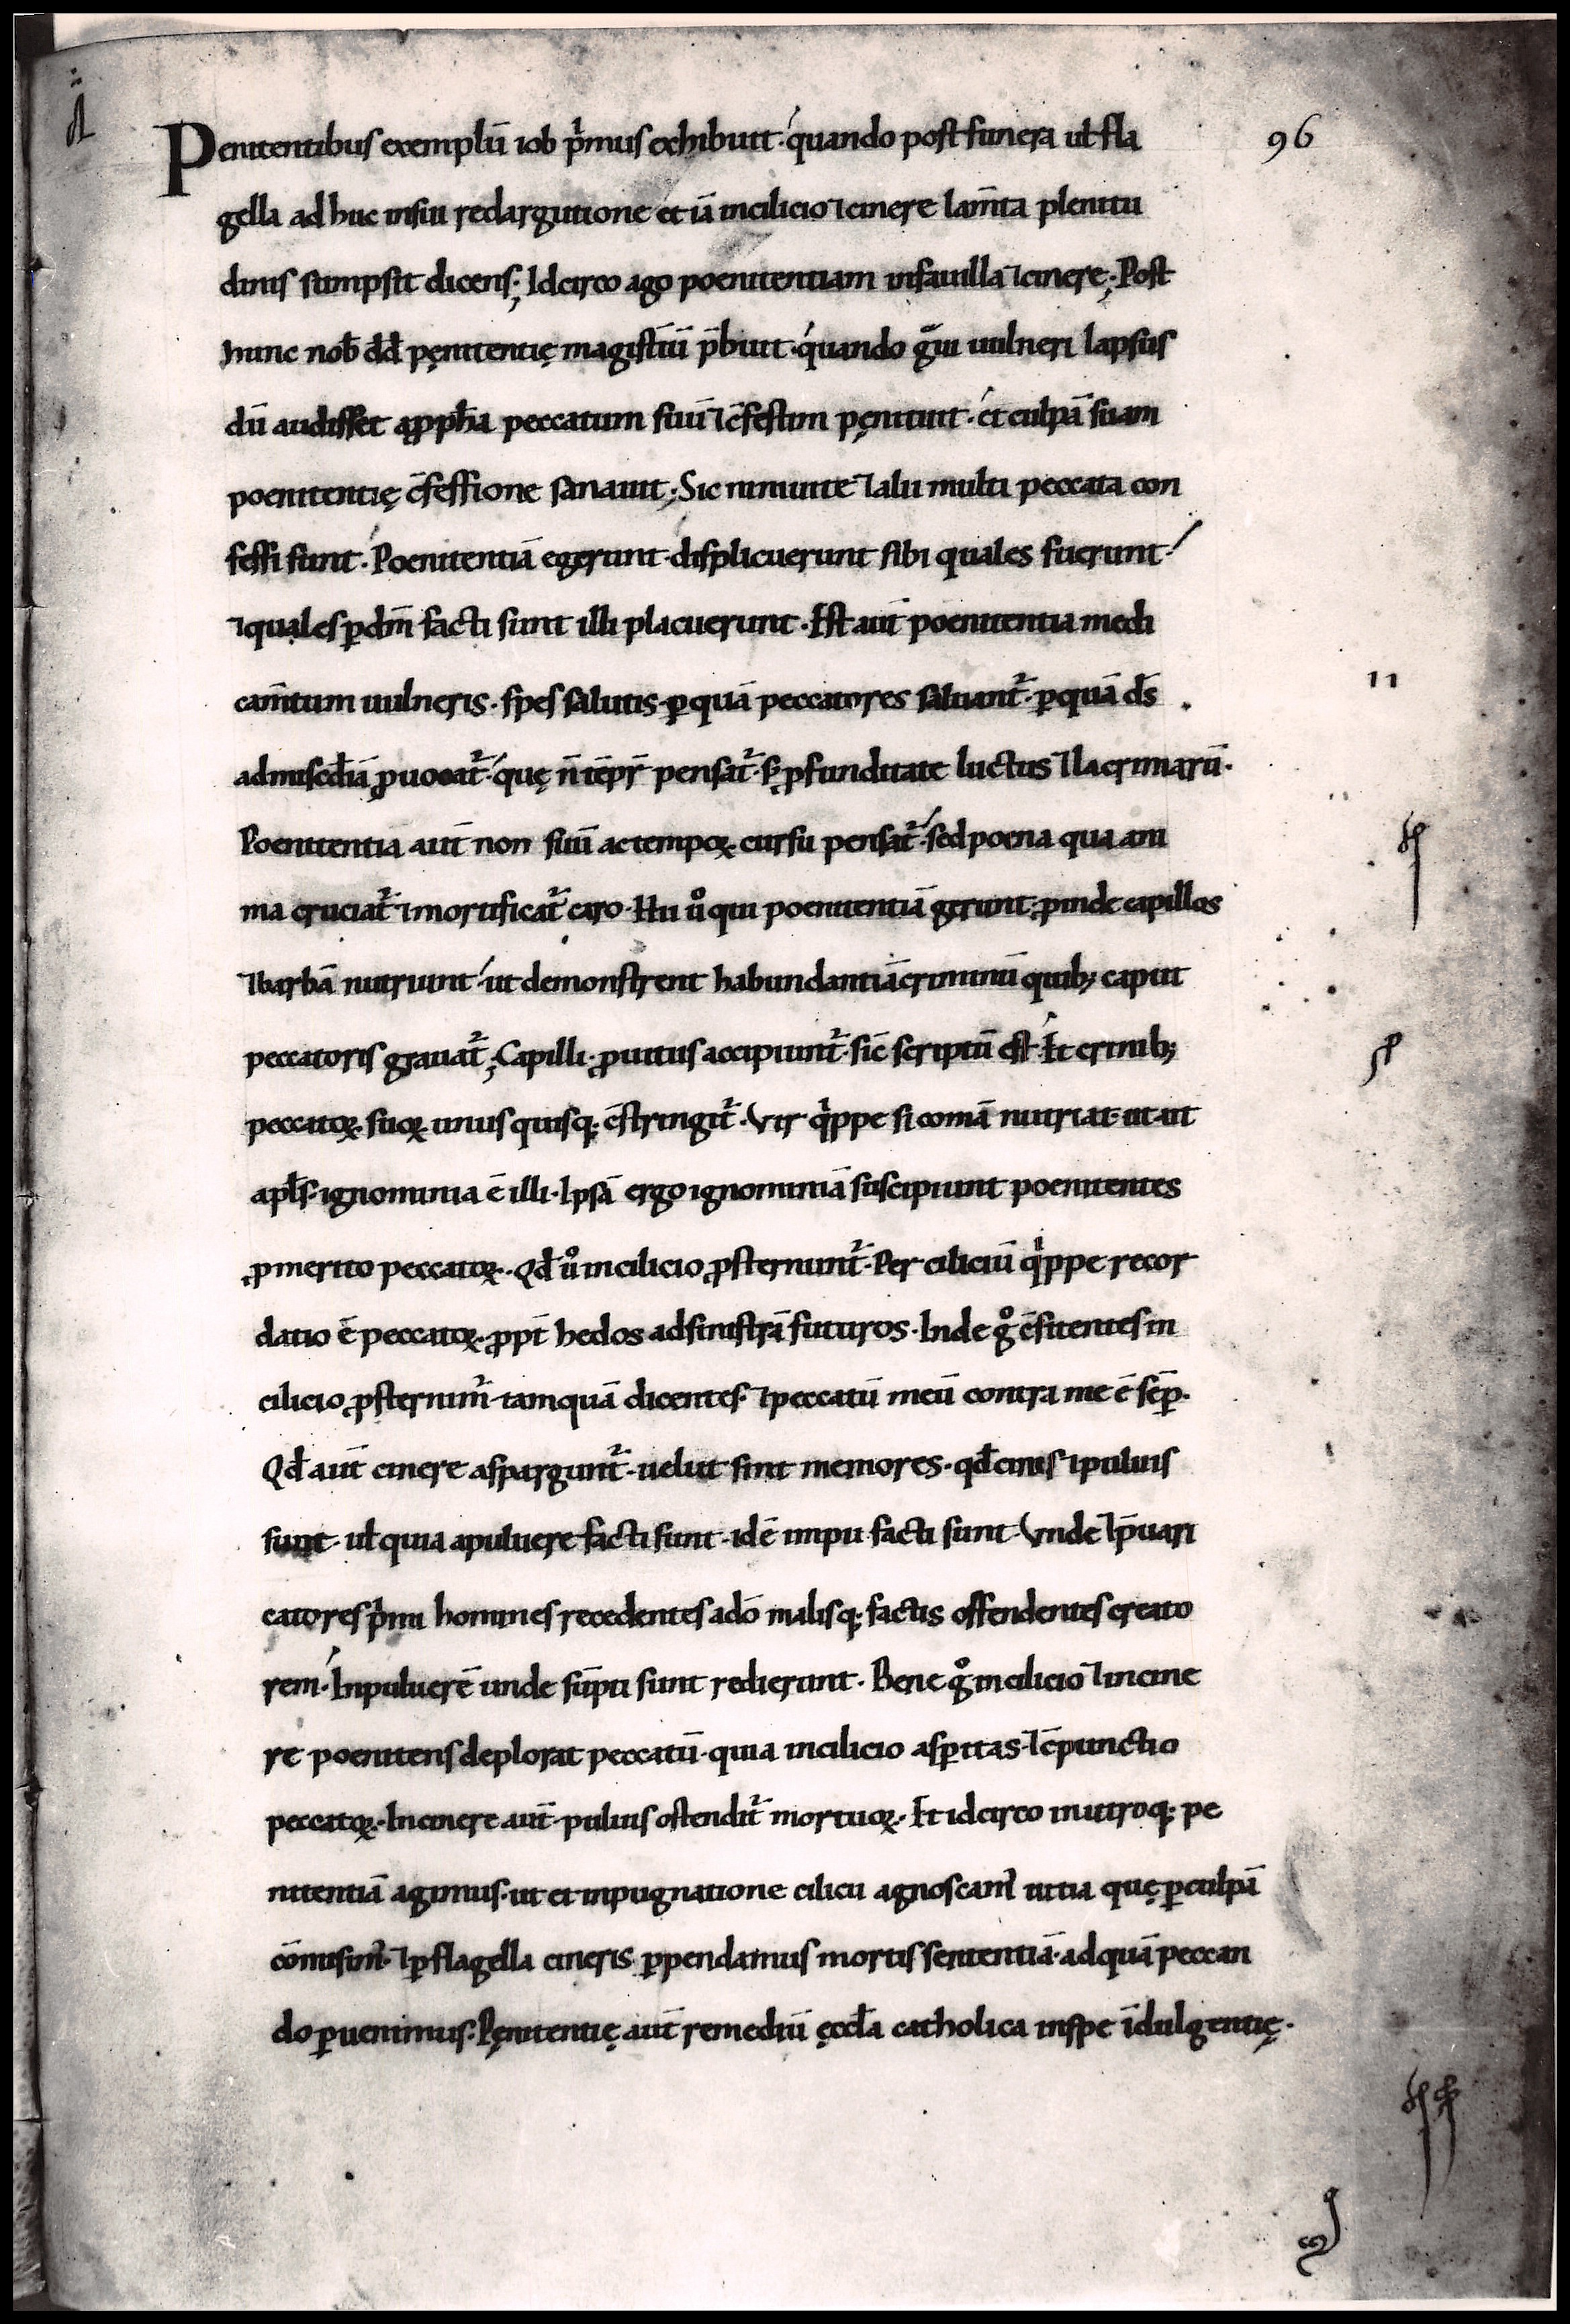 96
Penitentibus exemplū iob p̓mus exhibuit· quando post funera ul̄ fla
gella ad huc insui redargutione et iā incilicio ⁊cinere lam̄ta plenitu
dinis sumpsit dicens; Idcirco ago poenitentiam infauilla ⁊cinere; Post
hunc nob̄ dd̄ pęnitentię magist̄iū p̄buit· quando gͣui uulneri lapsus
dū audisset aꝓph̄a peccatum suū ⁊c̄festim pęnituit· et culpā suam
poenitentię c̄fessione sanauit; Sic niniuite ⁊alii multi peccata con
fessi sunt· Poenitentiā egerunt· displicuerunt sibi quales fuerunt·
⁊quales ꝑdm̄ facti sunt illi placuerunt· Est aut̄ poenitentia medi
cam̄tum uulneris· spes salutis· ꝑquā peccatores saluant᷑· ꝑquā ds̄
admisc̄diā ꝓuocat᷑· quę n̄ tēpr̄ pensat᷑· s; ꝓfunditate luctus ⁊lacrimarū·
Poenitentia aut̄ non suū ac tempoꝝ cursu pensat᷑· sed poena qua ani
ma cruciat᷑ ⁊mortificat᷑ caro· Hii uͦ qui poenitentiā gerunt· ꝓinde capillos
⁊barbā nutriunt· ut demonstrent habundantiā criminū quib; caput
peccatoris grauat᷑; Capilli· ꝓuitiis accipiunt᷑· sic̄ scriptū est· Et crinib;
peccatoꝝ· suoꝝ unus quisq; c̄stringit᷑· Vir q̓ppe si comā nutriat· ut ait
apl̄s· ignominia ē illi· Ipsā ergo ignominiā suscipiunt poenitentes
ꝓmerito peccatoꝝ· Qd̄ uͦ incilicio ꝓsternunt᷑· Per ciliciū q̓ppe recor
datio ē peccatoꝝ· ꝓpt̄ hedos adsinistrā futuros· Inde gͦ c̄fitentes in
cilicio ꝓsternim᷒ tamquā dicentes· ⁊peccatū meū contra me ē sēꝑ·
Qd̄ aut̄ cinere asparguntꝰ· uelut sint memores· qd̄ cinis ⁊puluis
sunt· ul̄ quia apuluere facti sunt· idē impii facti sunt· Vnde ⁊p̄uari
catores p̓mi homines recedentes adō malisq; factis offendentes creato
rem· Inpuluerē unde sūpti sunt redierunt· Bene gͦ incilicio ⁊incine
re poenitens deplorat peccatū· quia incilicio asꝑitas· ⁊c̄punctio
peccatoꝝ· Incinere aut̄· puluis ostendit᷑ mortuoꝝ· Et idcirco inutroq; pe
nitentiā agimus· ut et inpugnatione cilicii agnoscam᷒ uitia quę ꝑculpā
cōmisim᷒· ⁊ꝑflagella cineris ꝑpendamus mortis sententiā· adquā peccan
do ꝑuenimus· Pęnitentię aut̄ remediū ęccl̄a catholica inspe īdulgentię·